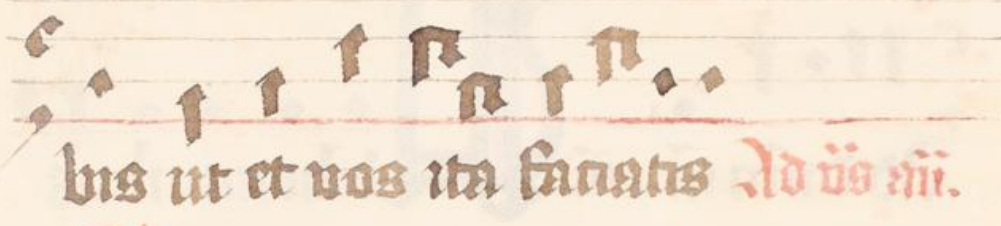 bis ut et vos ita faciatis Ad vs̄ añ.